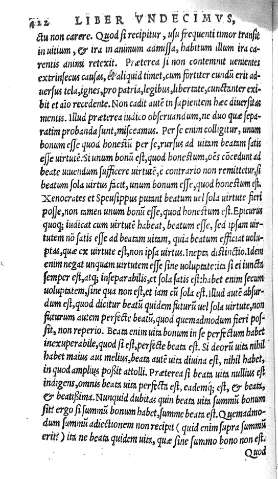 422 LIBER VNDECIMVS,
ctu non carere. Quod si recipitur, usu frequenti timor transit
in uitium, & ira in animum admissa, habitum illum ira ca-
rentis animi retexit. Præterea si non contemnit uenientes
extrinsecus causas, & aliquid timet, cum fortiter eundũ erit ad-
uersus tela, ignes, pro patria, legibus, libertate, cunctanter exi-
bit et aĩo recedente. Non cadit autẽ in sapientem hæc diuersitas
mentis. Illud præterea iudico obseruandum, ne duo quæ sepa-
ratim probanda sunt, misceamus. Per se enim colligitur, unum
bonum esse quod honestũ per se, rursus ad uitam beatam satis
esse uirtutẽ. Si unum bonũ est, quod honestum, oẽs cõcedunt ad
beate uiuendum sufficere uirtutẽ, è contrario non remittetur, si
beatum sola uirtus facit, unum bonum esse, quod honestum est.
Xenocrates et Speusippus putant beatum uel sola uirtute fieri
posse, non tamen unum bonũ esse, quod honestum est. Epicurus
quoq; iudicat cum uirtutẽ habeat, beatum esse, sed ipsam uir-
tutem nõ satis esse ad beatam uitam, quia beatum efficiat uolu-
ptas, quæ ex uirtute est, non ipsa uirtus. Inepta distinctio. Idem
enim negat unquam uirtutem esse sine uoluptate: ita si ei iuncta
semper est, atq; inseparabilis, et sola satis est: habet enim secum
uoluptatem, sine qua non est, et iam cũ sola est. Illud autẽ absur-
dum est, quod dicitur beatũ quidem futurũ uel sola uirtute, non
futurum autem perfecte beatũ, quod quemadmodum fieri pos-
sit, non reperio. Beata enim uita bonum in se perfectum habet
inexuperabile, quod si est, perfecte beata est. Si deorũ uita nihil
habet maius aut melius, beata autẽ uita diuina est, nihil habet,
in quod amplius poßit attolli. Præterea si beata uita nullius est
indigens, omnis beata uita perfecta est, eademq; est, & beata,
& beatißima. Nunquid dubitas quin beata uita summũ bonum
sit? ergo si summũ bonum habet, summe beata est. Quemadmo-
dum summũ adiectionem non recipit (quid enim supra summũ
erit) ita ne beata quidem uita, quæ sine summo bono non est.
Quod